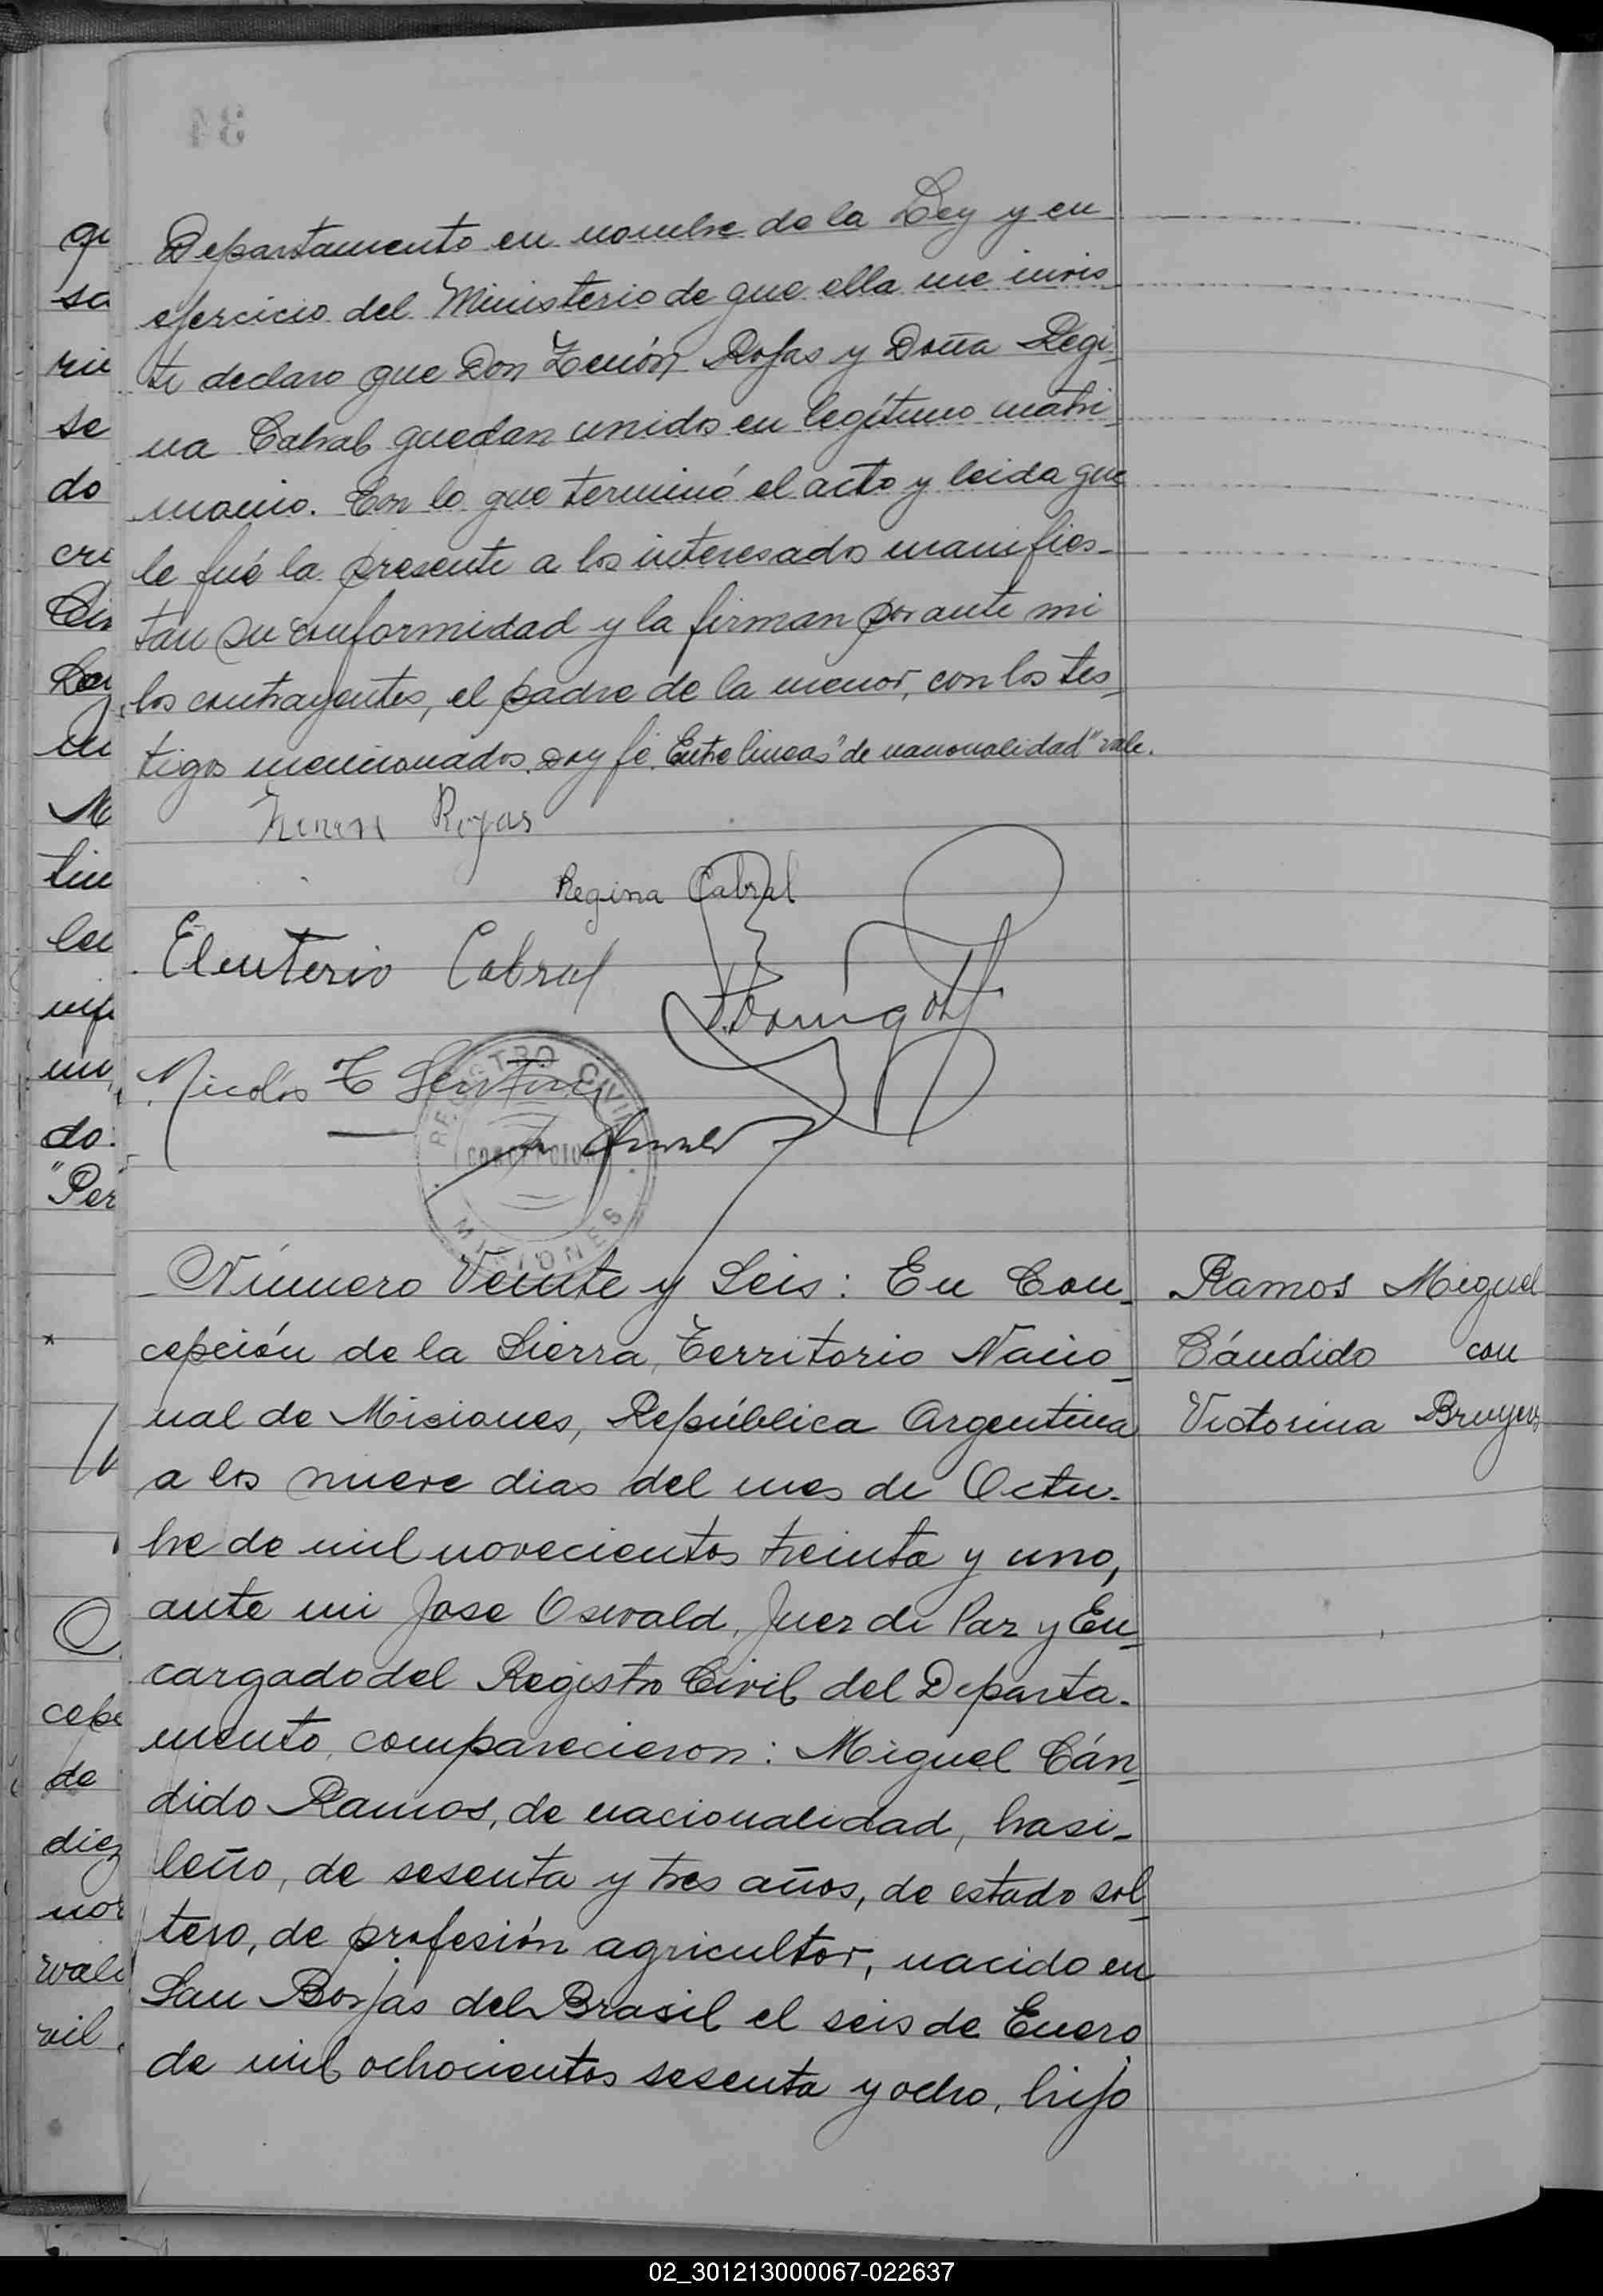 34
Departamento en nombre de la Ley y en
ejercicio del Ministerio de que ella me invis-
te declaro que Don Zenón Rojas y Doña Regi-
na Cabral quedan unidos en legítimo matri-
monio. Con lo que terminó el acto y leida que
le fué la presente a los interesados manifies-
tan su conformidad y la firman por ante mi
los contrayentes, el padre de la menor, con los tes-
tigos mencionados. Doy fé. Entre lineas "de nacionalidad" vale.
Zenon Rojas
Regina Cabral
Eleuterio Cabral
Nicolás
REGISTRO CIVIL
CONCEPCION
MISIONES
Número Veinte y Seis: En Con-
cepción de la Sierra, Territorio Nacio-
nal de Misiones, República Argentina
a los nueve dias del mes de Octu-
bre de mil novecientos treinta y uno,
ante mi Jose Oswald, Juez de Paz y En-
cargado del Registro Civil del Departa-
mento, comparecieron: Miguel Cán-
dido Ramos, de nacionalidad, brasi-
leño, de sesenta y tres años, de estado sol-
tero, de profesión agricultor, nacido en
San Borjas del Brasil el seis de Enero
de mil ochocientos sesenta y ocho, hijo
Ramos Miguel
Cándido con
Victorina Bruyers
qu
sa
rie
se
do
cri
Ley
en
M
tin
lei
do.
"Per
cepc
de
diez
nov
wald
vil
02_301213000067-022637